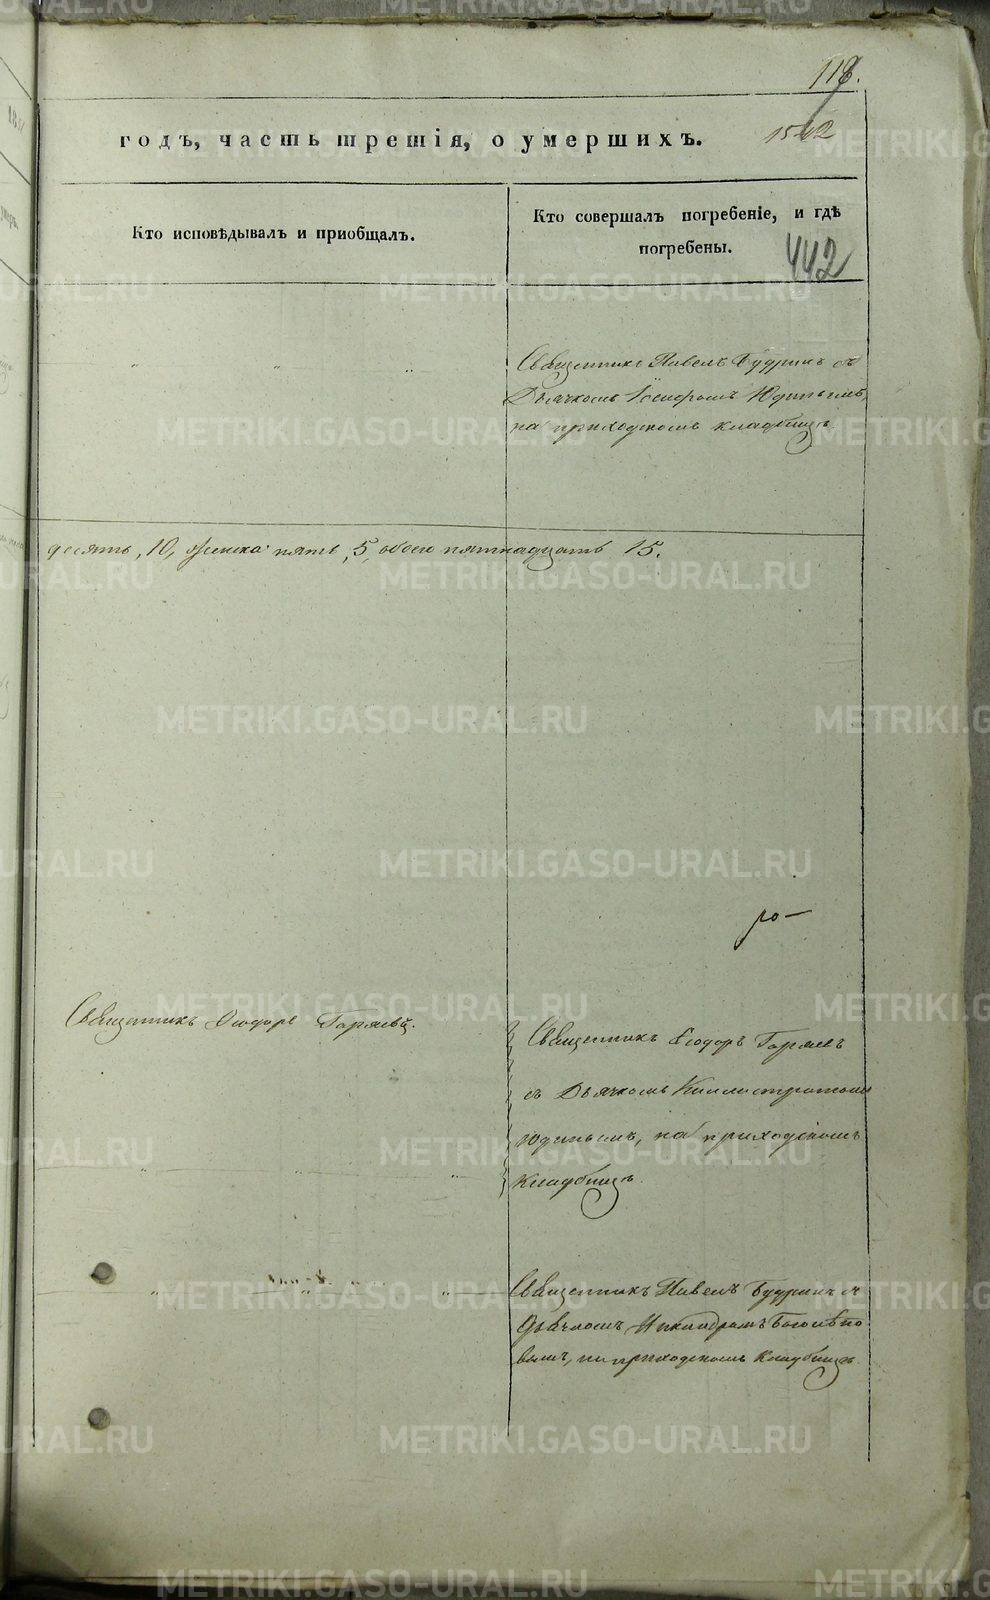 118.
годъ, часть третія, о умершихъ.
1542
Кто исповѣдывалъ и приобщалъ.
Кто совершалъ погребеніе, и гдѣ
погребены.
442
Священникъ Павелъ Будринъ съ
Дьячкомъ Іосифомъ Юдинымъ,
на приходскомъ кладбищѣ.
десять, 10, женска пять, 5, обоего пятнадцать 15.
Священникъ Ѳеодоръ
Священникъ Ѳеодоръ
съ Дьячкомъ Каллистратомъ
Юдинымъ, на приходскомъ
кладбищѣ.
Священникъ Павелъ Будринъ съ
Дьячкомъ Никандромъ Боголѣпо
вымъ, на приходскомъ кладбищѣ.
METRIKI.GASO-URAL.RU